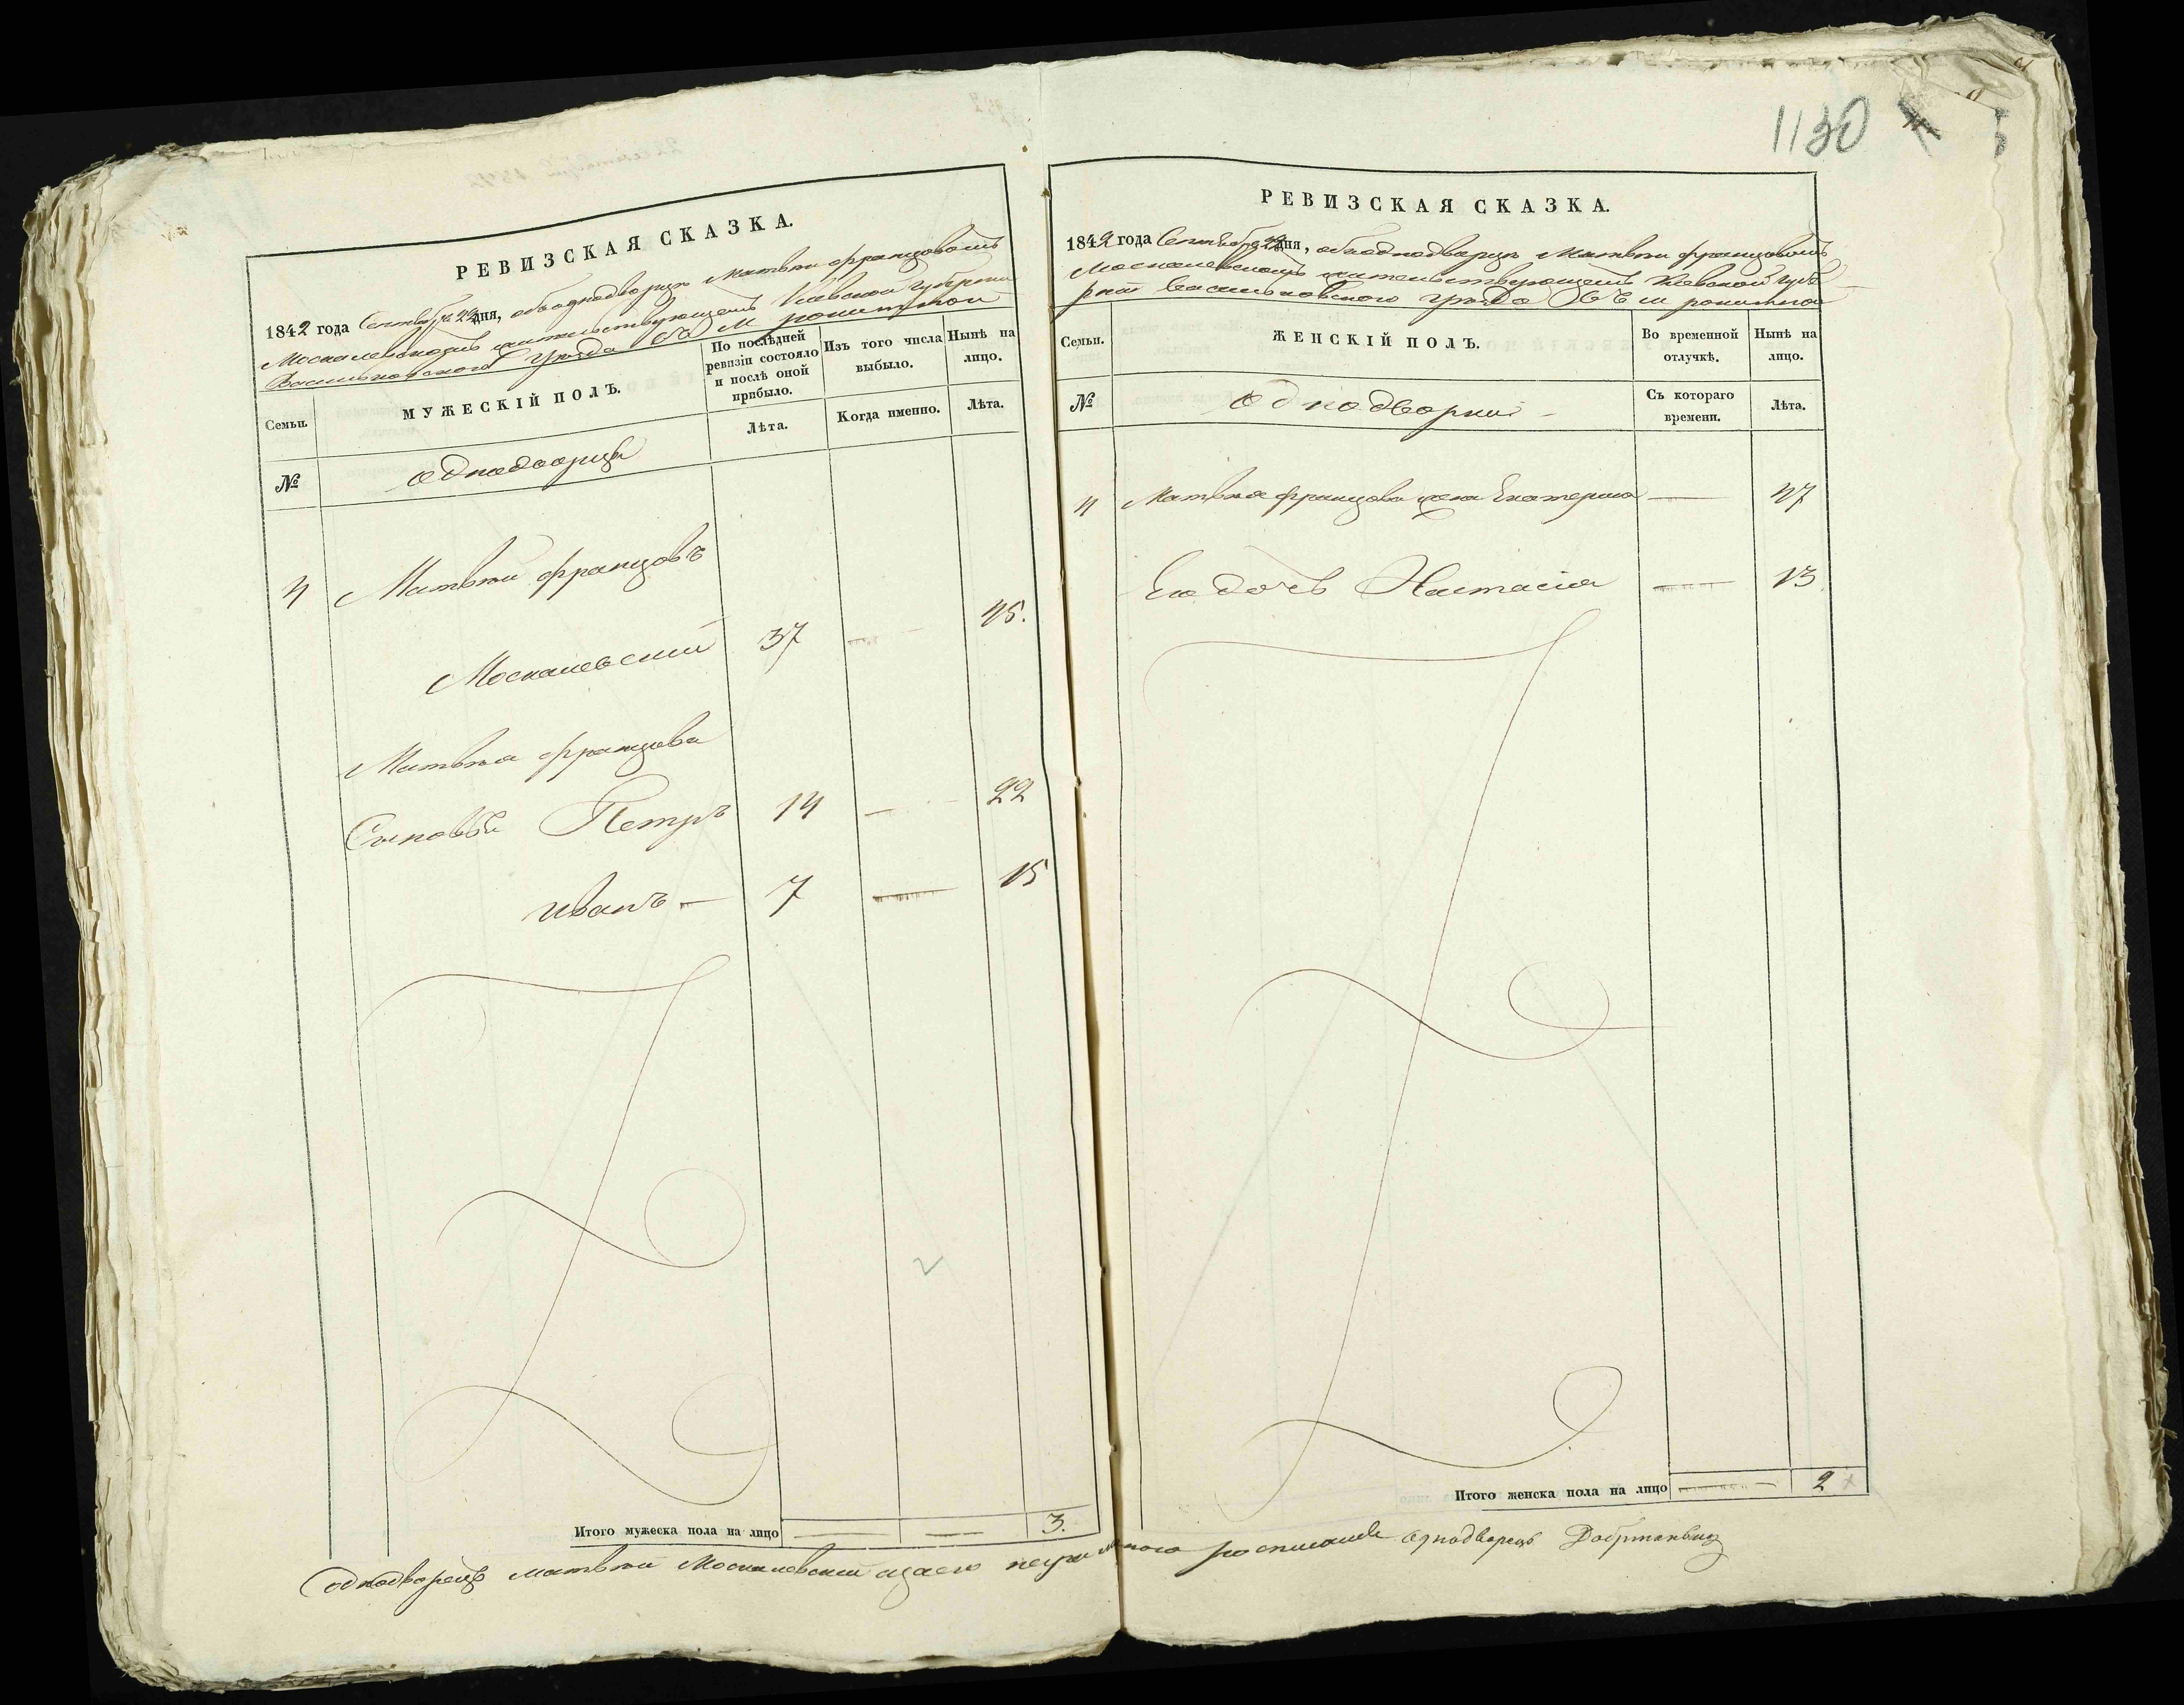 1130
РЕВИЗСКАЯ СКАЗКА.
1842 года Сентября 22 дня, объ однодворцѣ Матвѣи Францовомъ
Москалевскомъ жительствующемъ Кіевской Губерніи
Васильковскаго Уѣзда въ м
Семьи.
МУЖЕСКІЙ ПОЛЪ.
По послѣдней ревизіи состояло и послѣ оной прибыло.
Изъ того числа выбыло.
Нынѣ на лицо.
Лѣта.
Когда именно.
Лѣта.
№
однодворцы
4 Матвѣй Францовъ
Москалевскій 37 — 45.
Матвѣя Францова
Сыновья Петръ 14 — 22
Иванъ — 7 — 15
Итого мужеска пола на лицо — — 3.
РЕВИЗСКАЯ СКАЗКА.
1842 года Сентября 22 дня, объ однодворцѣ Матвѣи Францовомъ
Москалевскомъ жительствующемъ Кіевской Губе
рніи Васильковскаго уѣзда въ м
Семьи.
ЖЕНСКІЙ ПОЛЪ.
Во временной отлучкѣ.
Нынѣ на лицо.
№
однодворки —
Съ котораго времени.
Лѣта.
4 Матвѣя Францова жена Екатерина — 47
Его дочь Настасія — 13
Итого женска пола на лицо — 2
Однодворецъ Матвѣй Москалевскій однодворецъ